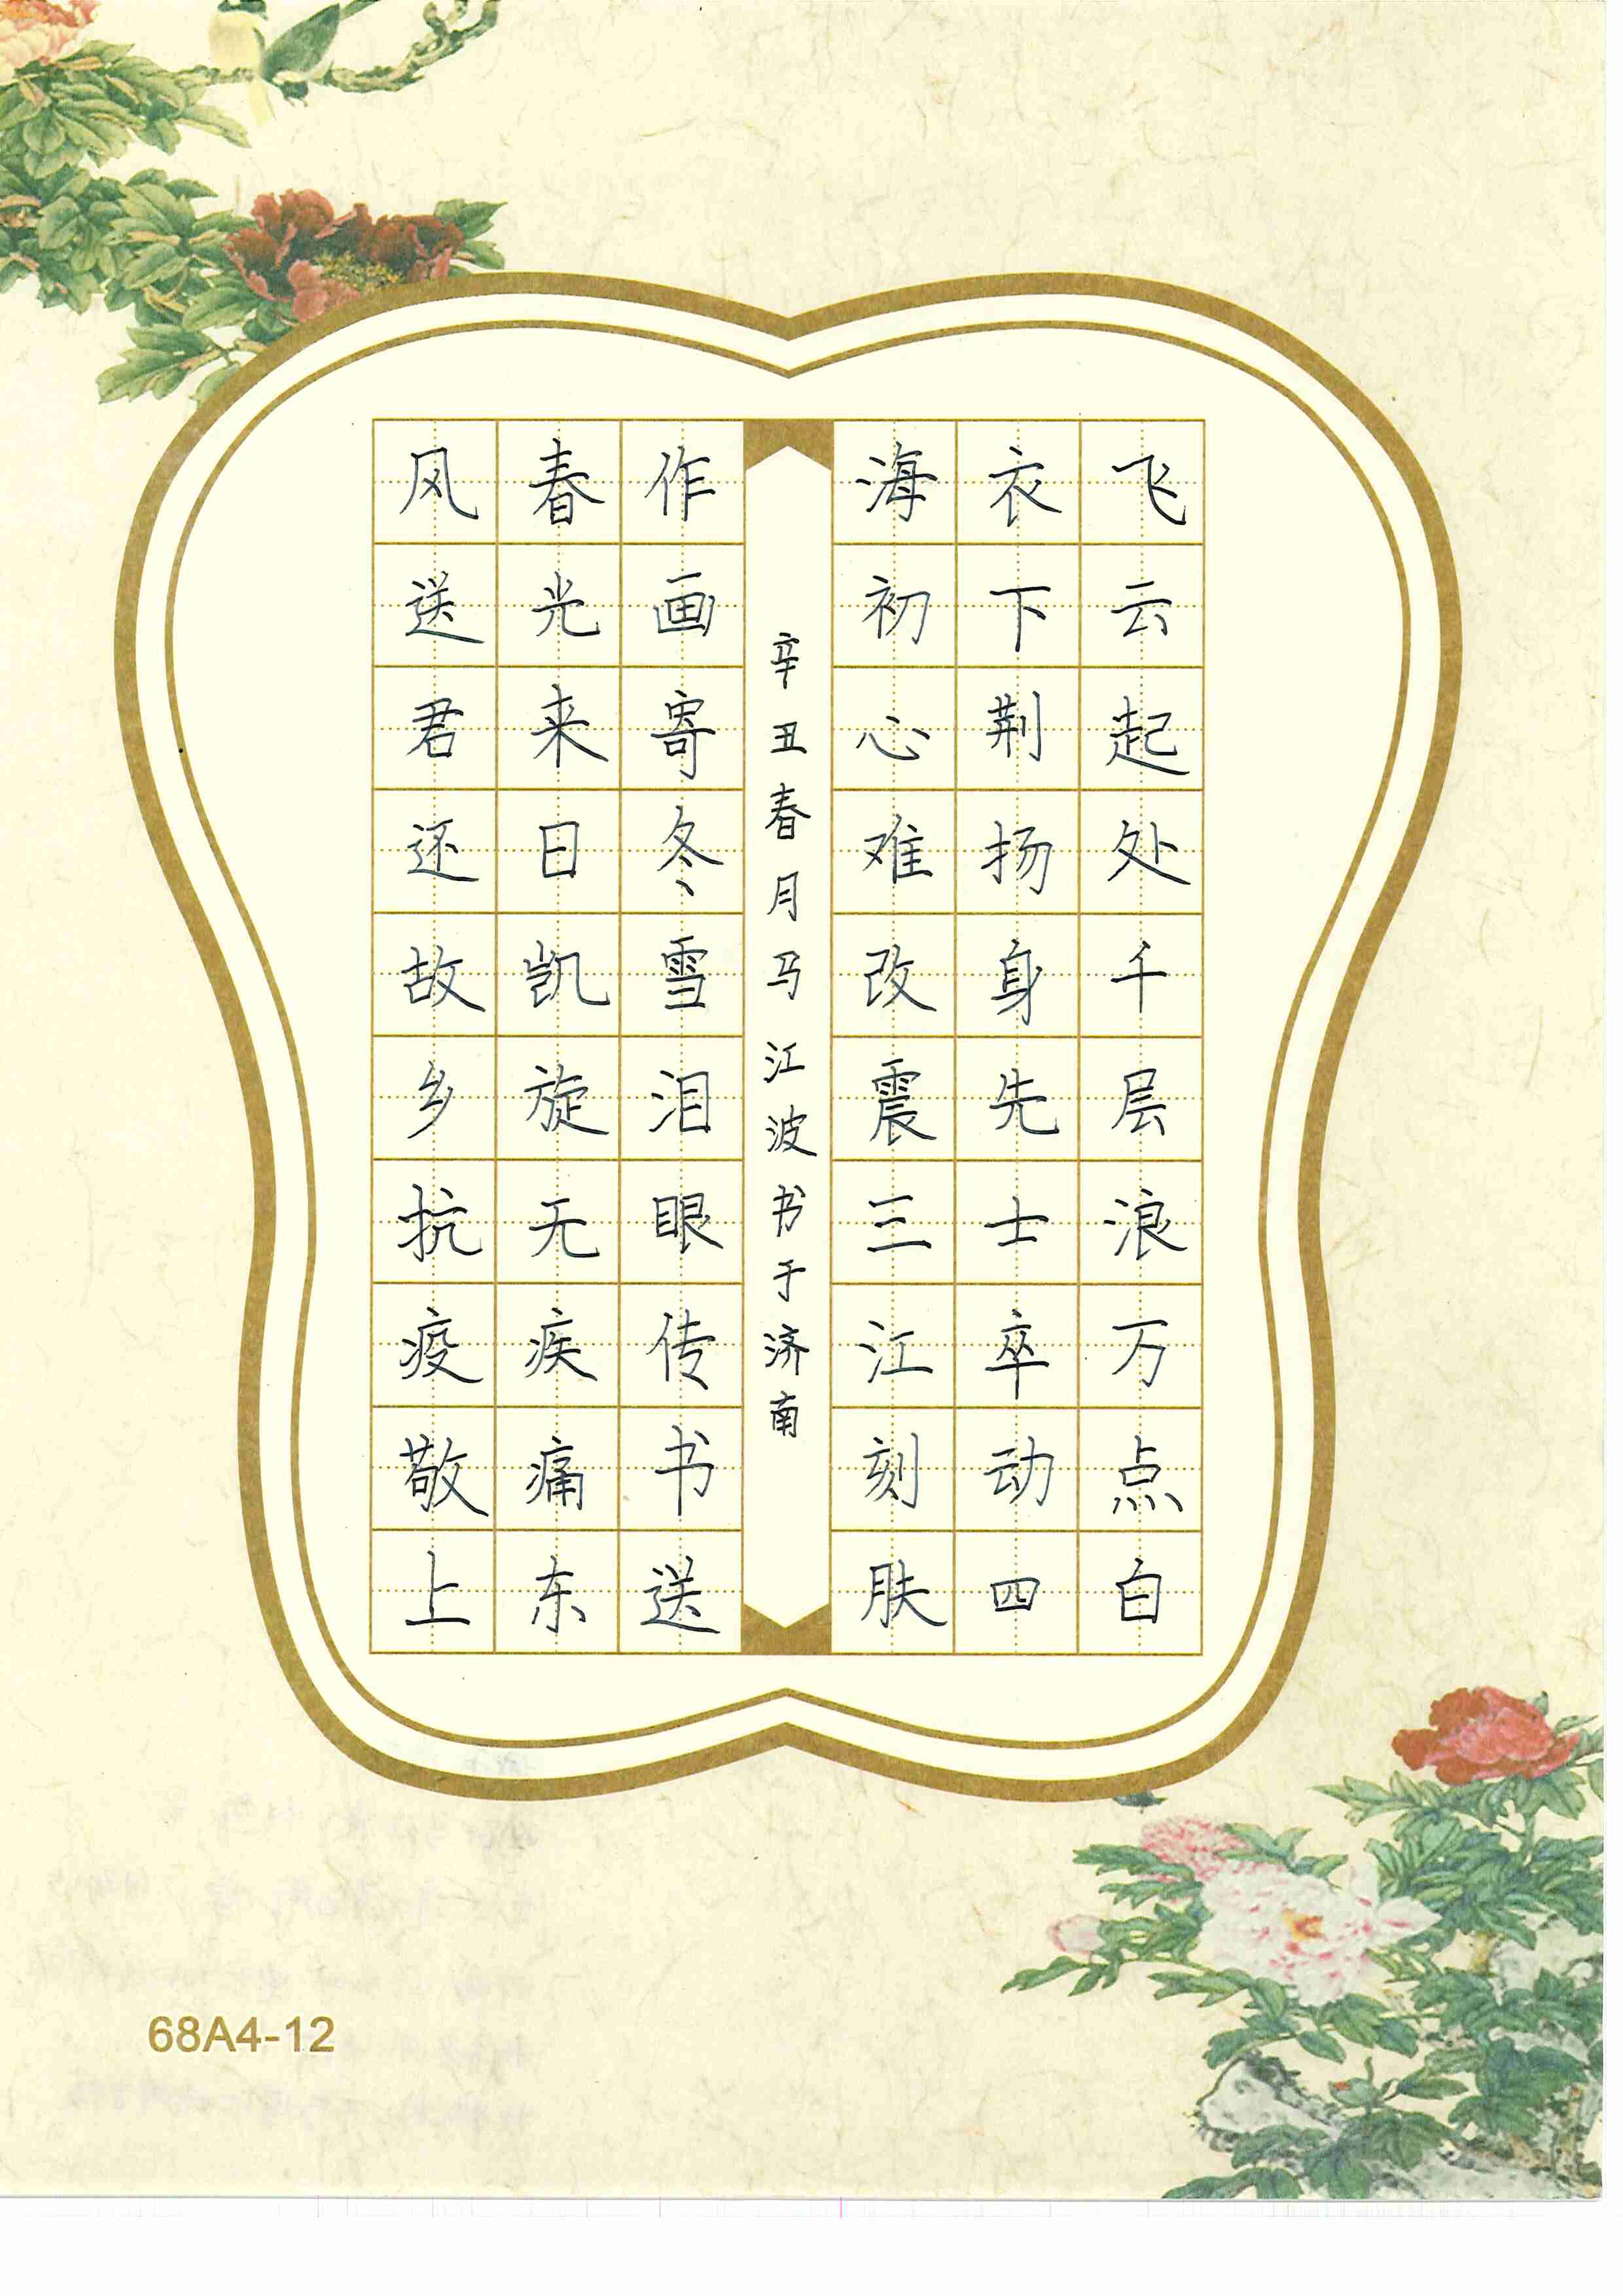 飞云起处千层浪万点白
衣下荆扬身先士卒动四
海初心难改震三江刻肤
作画寄冬雪泪眼传书送
春光来日凯旋无疾痛东
风送君还故乡抗疫敬上
辛丑春月马江波书于济南
68A4-12